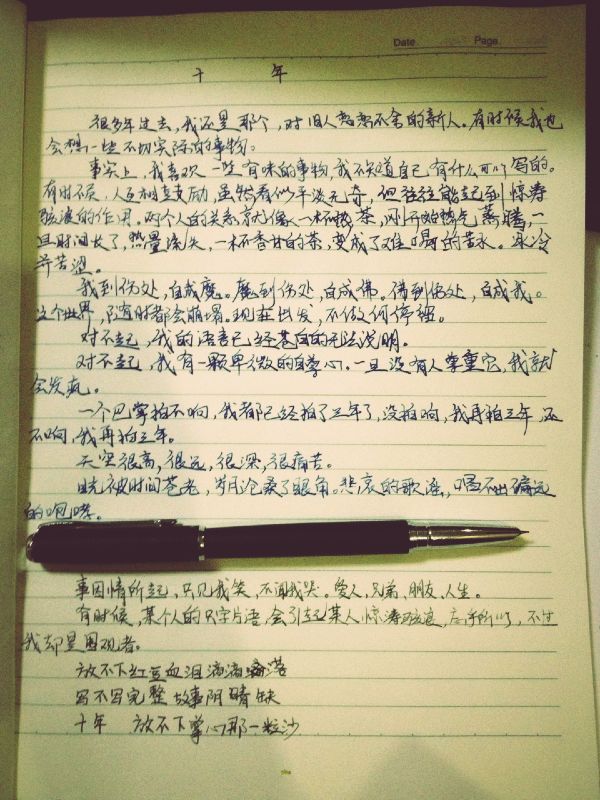 Date Page
十 年
很多年过去，我还是那个，对旧人恋恋不舍的新人。有时候我也
会想一些不切实际的事物。
事实上，我喜欢一些有味的事物，我不知道自己有什么可以写的。
有时候，人互相鼓励，虽然看似平淡无奇，但往往能起到惊涛
骇浪的作用。两个人的关系就像一杯热茶，刚开始热气蒸腾，一
旦时间长了，热量流失，一杯香甘的茶，变成了难喝的苦水。冰冷
并苦涩。
我到伤处，自成魔。魔到伤处，自成佛。佛到伤处，自成我。
这个世界，随时都会崩塌。现在出发，不做何停留。
对不起，我的语言已经苍白的无法说明。
对不起，我有一颗卑微的自尊心。一旦没有人尊重它，我就
会发疯。
一个巴掌拍不响，我都已经拍了三年了，没拍响，我再拍三年，还
不响，我再拍三年。
天空很高，很远，很深，很痛苦。
目光被时间苍老，岁月沧桑了眼角。悲哀的歌谣，唱不出偏远
的咆哮。
事因情所起，只见我笑，不闻我哭。爱人，兄弟，朋友，人生。
有时候，某个人的只字片语，会引起某人惊涛骇浪，不过
我却是围观者。
放不下红豆血泪滴滴落
写不写完整故事阴晴缺
十年 放不下掌心那一粒沙